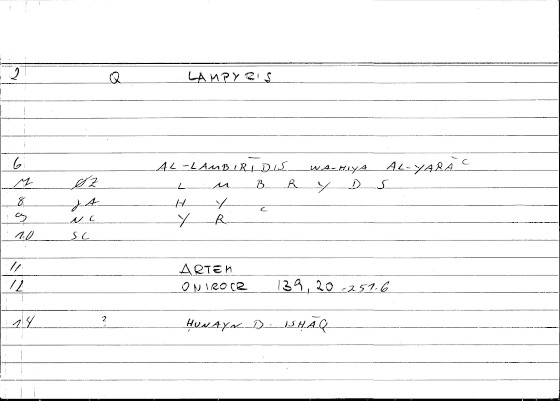 2 Q LAMPYRIS
6 AL-LAMBIRĪDIS WA-HIYA AL-YARĀʿ
M ØZ L M B R Y D S
8 JA H Y
9 NC Y R ʿ
10 SC
11 ARTEM
12 ONIROCR 139,20-251.6
14 ? ḤUNAYN B. ISḤĀQ